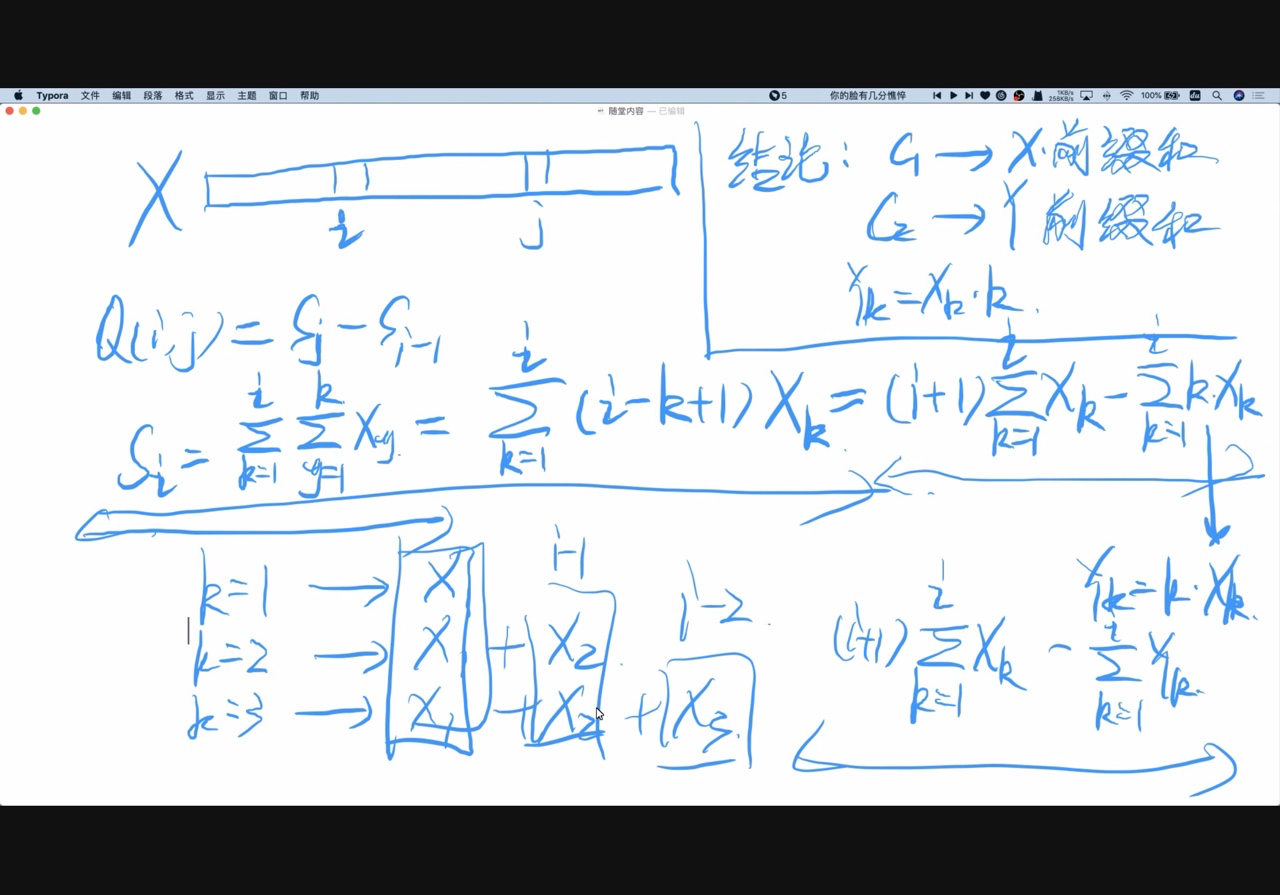 Typora 文件 编辑 段落 格式 显示 主题 窗口 帮助 5 你的脸有几分憔悴 1KB/s 258KB/s 100%
随堂内容 — 已编辑
X
i j
结论: C1 → X 前缀和
C2 → Y 前缀和
Yk = Xk · k
Q(i,j) = Sj - Si-1
Si = ∑_{k=1}^{i} ∑_{y=1}^{k} Xy = ∑_{k=1}^{i} (i-k+1) Xk = (i+1) ∑_{k=1}^{i} Xk - ∑_{k=1}^{i} k·Xk
i-1
i-2
k=1 → X
k=2 → X + X2
k=3 → X1 + X2 + X3
Yk = k·Xk
(i+1) ∑_{k=1}^{i} Xk - ∑_{k=1}^{i} Yk